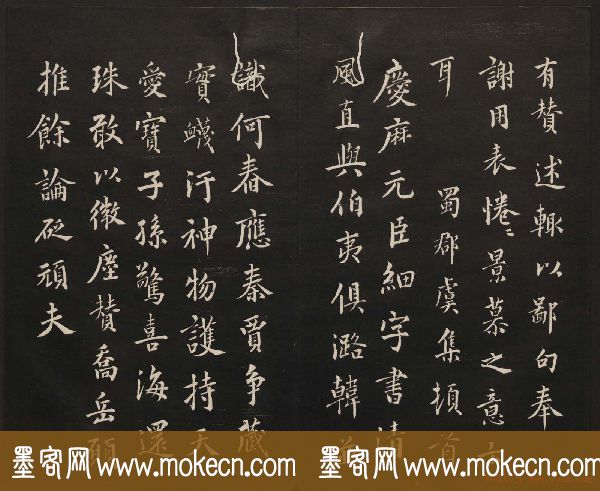 有賛述輙以鄙句奉
謝用表惓〻景慕之意
耳 蜀郡虞集頓首
慶麻元臣細字書清
風直與伯夷俱潞韓
識何春應秦賈争蔵
寶韈汙神物護持天
愛寶子孫驚喜海還
珠敢以微塵賛喬岳願
推餘論砭頑夫
墨客网www.mokecn.com 墨客网www.mokecn.com